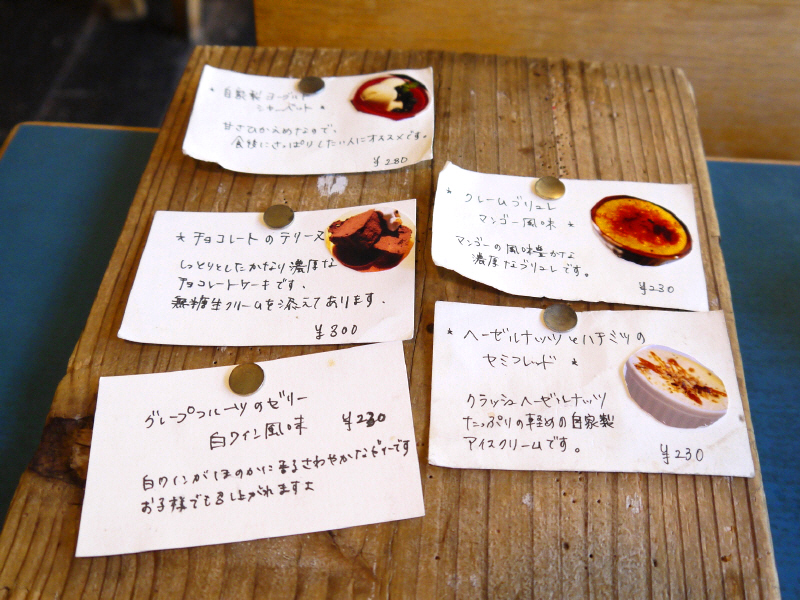 * 自家製ヨーグルト
シャーベット *
甘さひかえめなので、
食後にさっぱりしたい人にオススメです。
¥280
* チョコレートのテリーヌ
しっとりとしたかなり濃厚な
チョコレートケーキです、
無糖生クリームを添えてあります.
¥300
グレープフルーツのゼリー
白ワイン風味 ¥230
白ワインがほのかに香るさわやかな
お子様でも召し上がれますよ
* クレームブリュレ
マンゴー風味 *
マンゴーの風味豊かな
濃厚なブリュレです。
¥230
* ヘーゼルナッツとハチミツの
セミフレッド *
クラッシュヘーゼルナッツ
たっぷりの軽めの自家製
アイスクリームです。
¥230